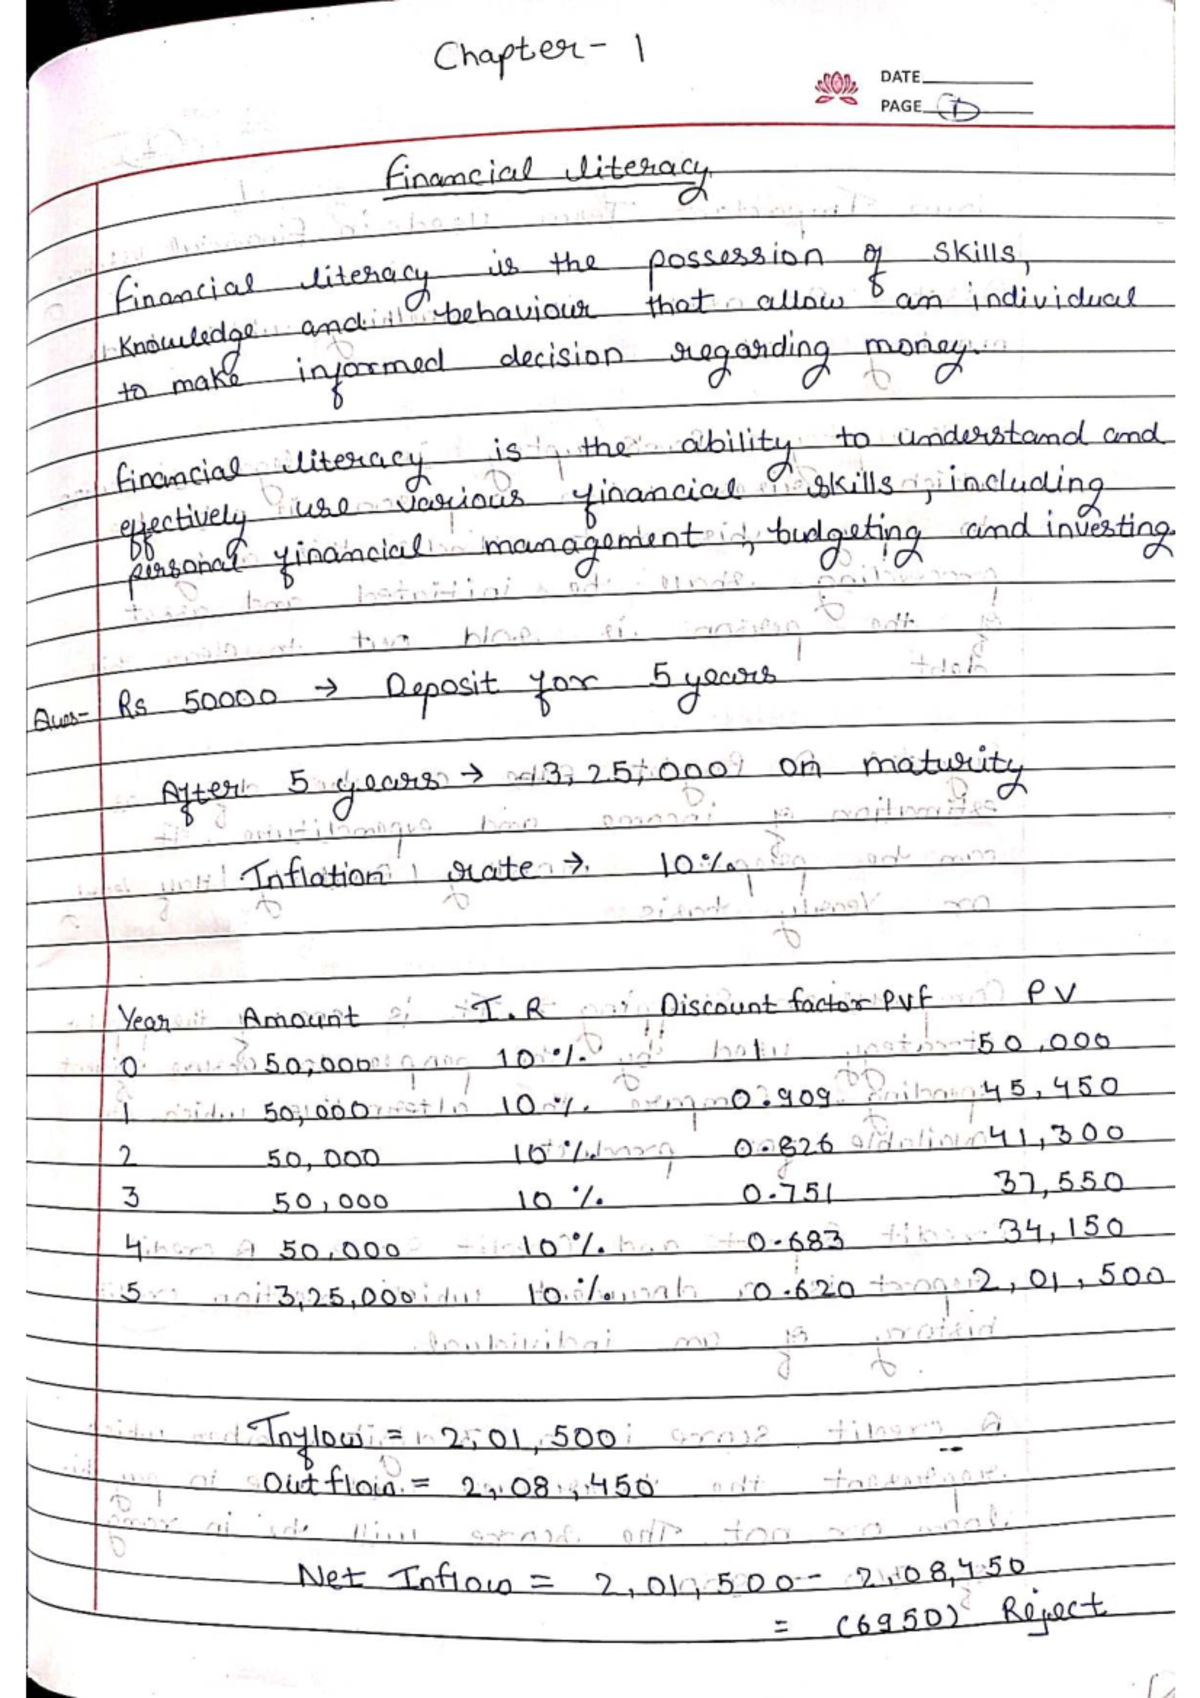 Chapter- 1
DATE
PAGE 1
Financial literacy
Financial literacy is the possession of skills,
Knowledge and behaviour that allow an individual
to make informed decision regarding money.
Financial literacy is the ability to understand and
effectively use various financial skills, including
personal financial management, budgeting and investing
Ques- Rs 50000 → Deposit for 5 years
After 5 years → 3,25,000 on maturity
Inflation rate → 10%
Year Amount I.R Discount factor PVF PV
0 50,000 10% 50,000
1 50,000 10% 0.909 45,450
2 50,000 10% 0.826 41,300
3 50,000 10% 0.751 37,550
4 50,000 10% 0.683 34,150
5 3,25,000 10% 0.620 2,01,500
Inflow = 2,01,500
Outflow = 2,08,450
Net Inflow = 2,01,500 - 2,08,450
= (6950) Reject